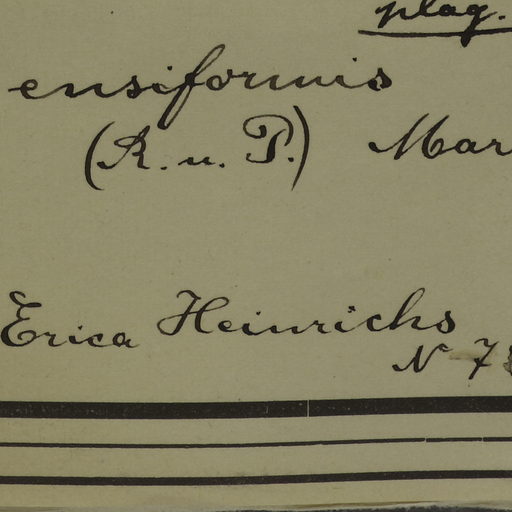 plag.
ensiformis
(R. u. P.) Mar
Erica Heinrichs
N 7